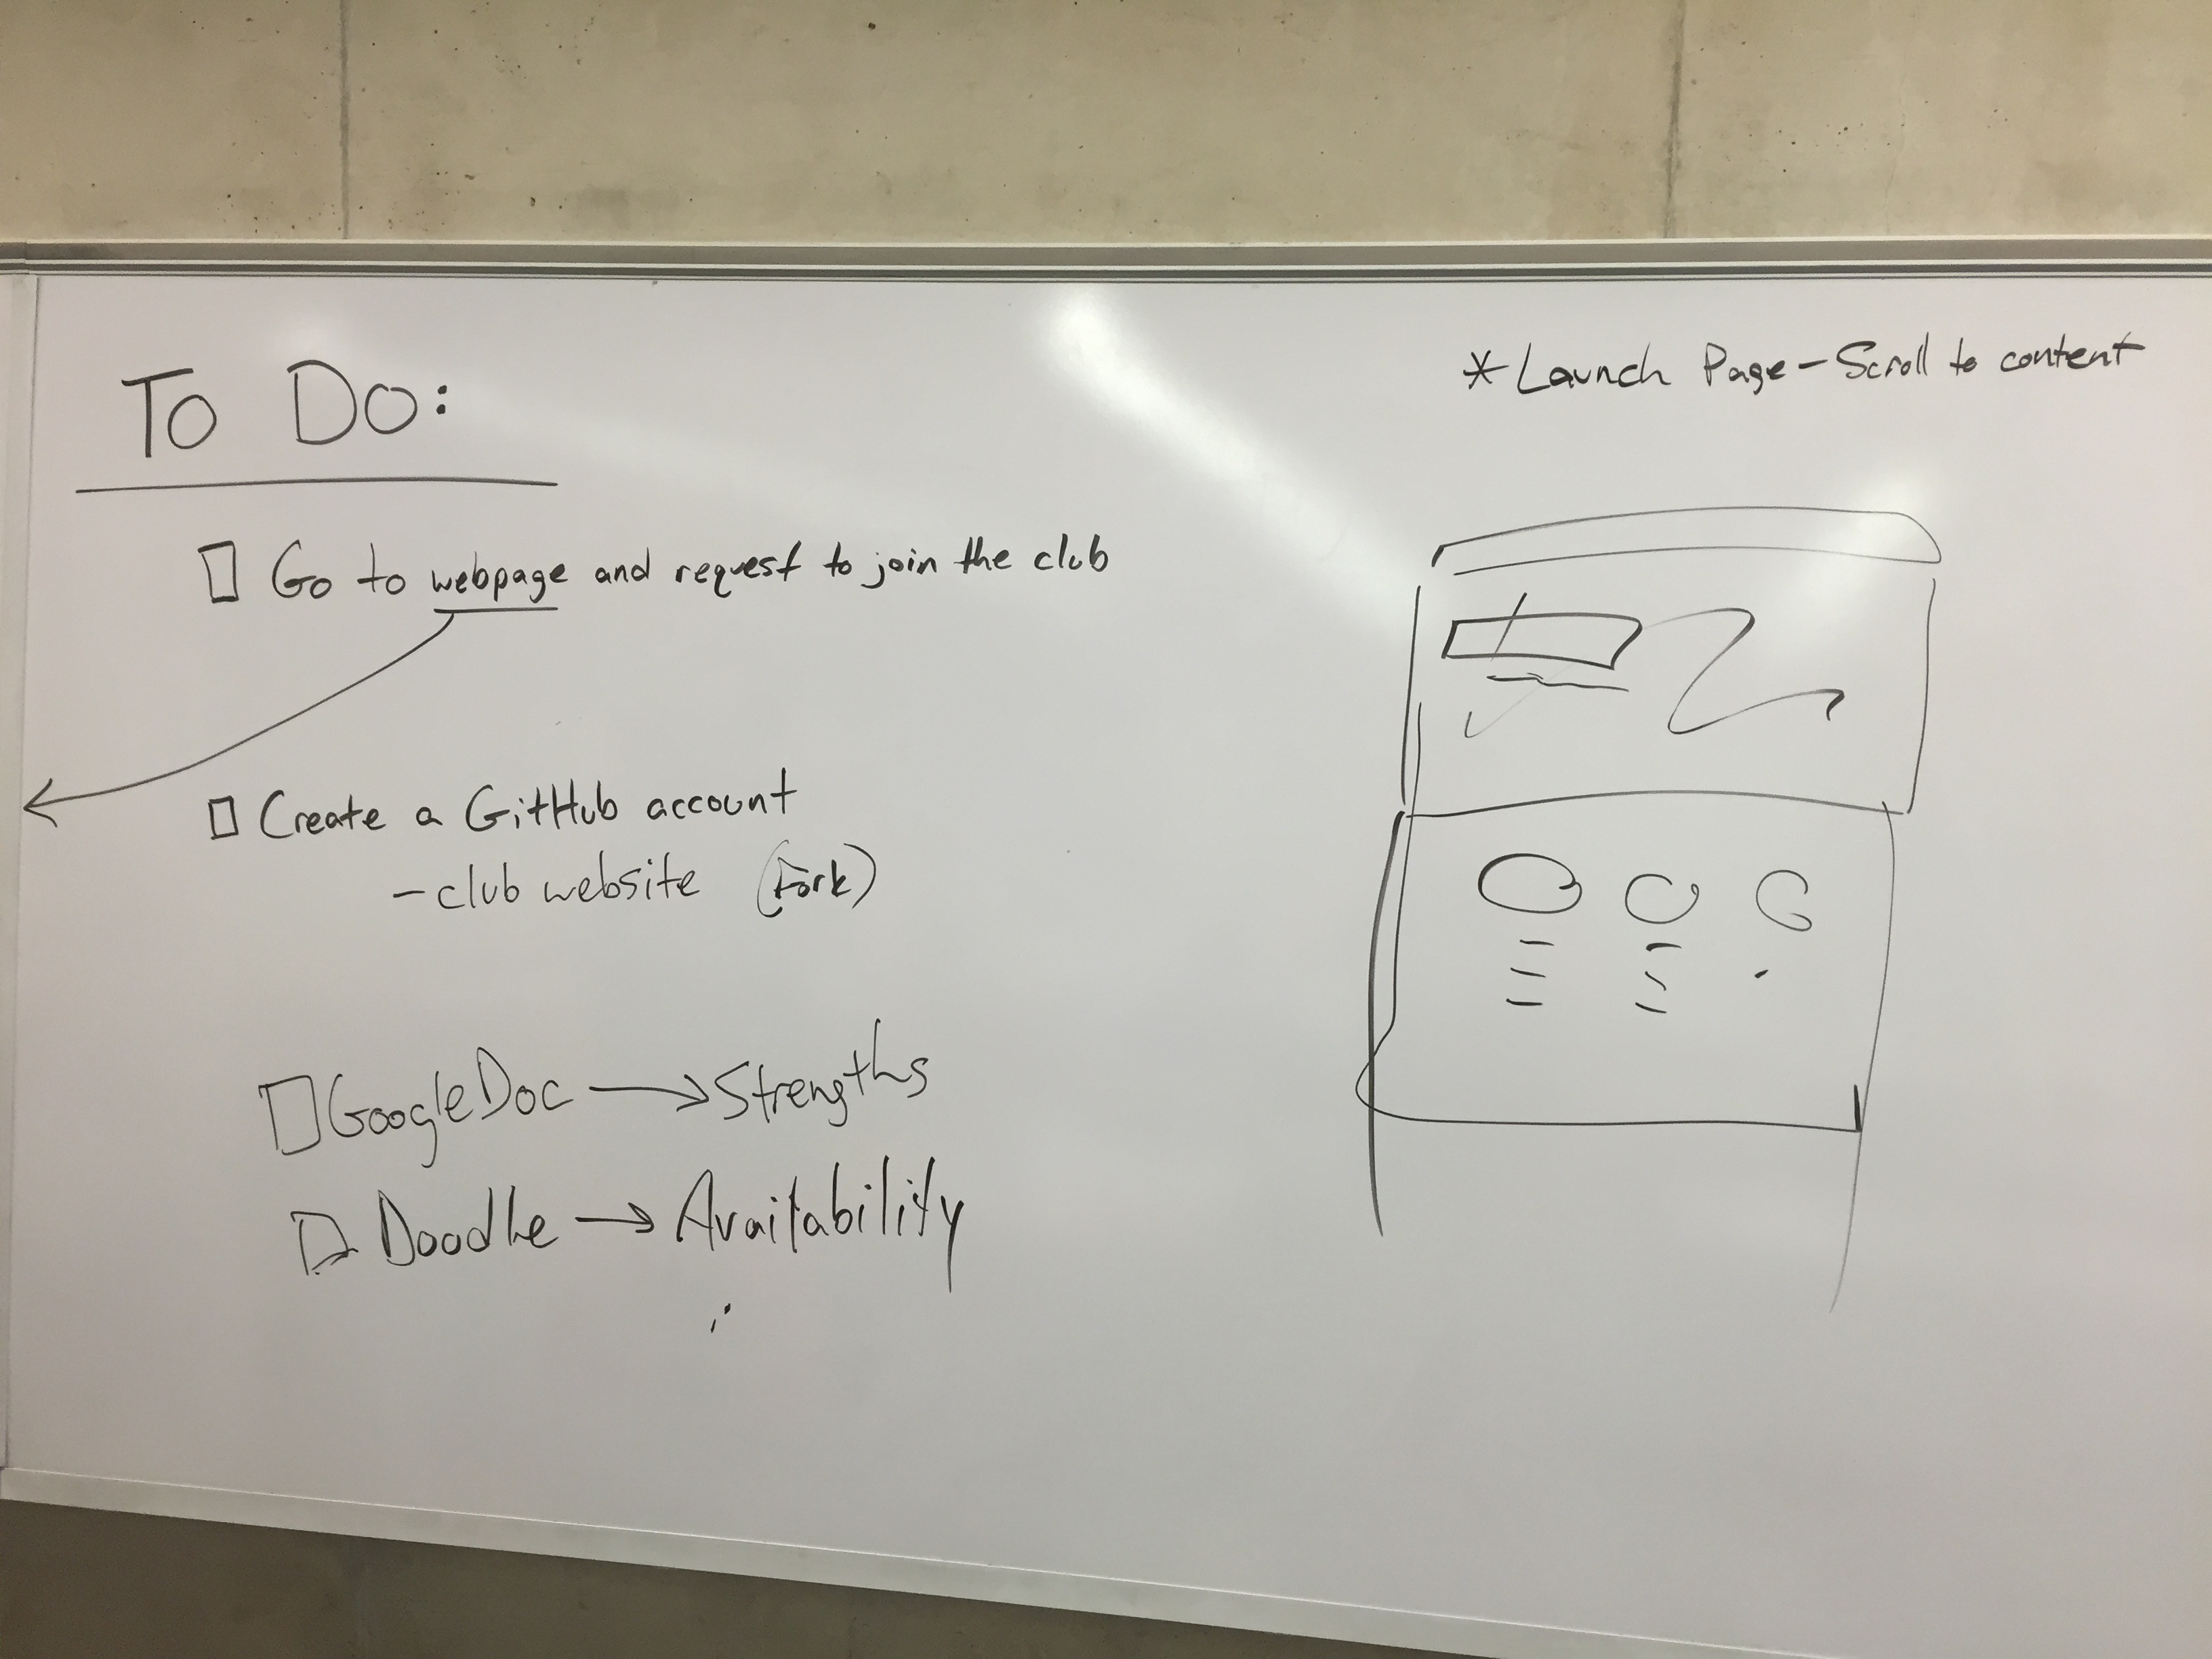 To Do:
Go to webpage and request to join the club
Create a GitHub account
- club website (Fork)
GoogleDoc → Strengths
Doodle → Availability
* Launch Page - Scroll to content